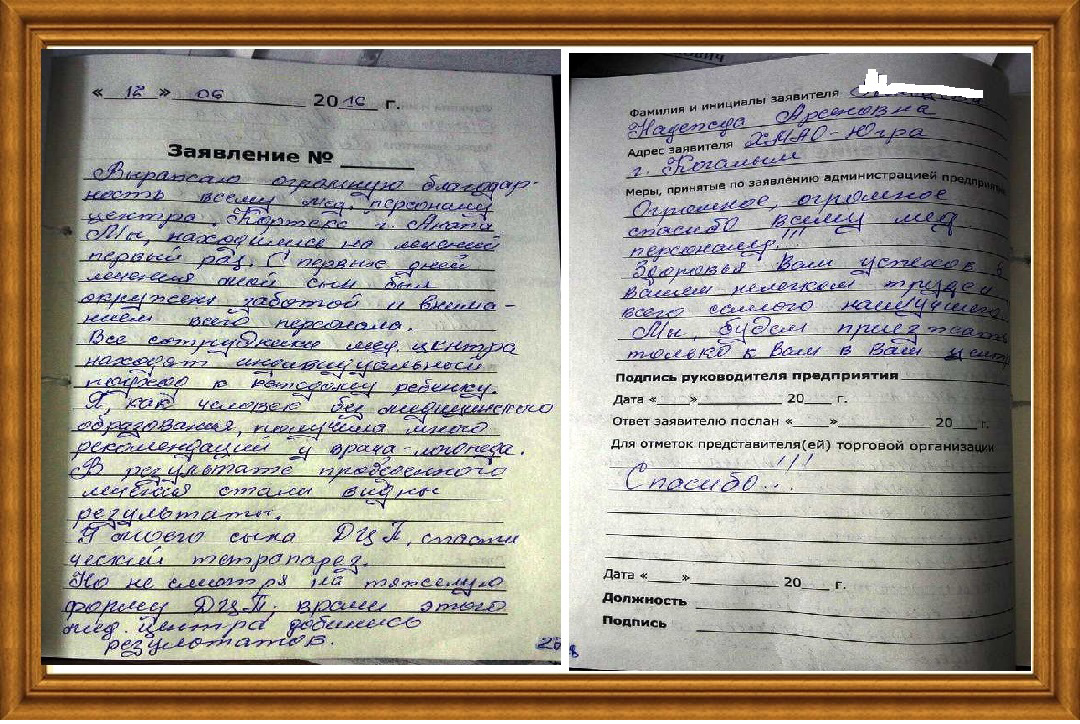 « 12 » 06 2016 г.
Заявление №
Выражаю огромную благодар-
ность всему мед. персоналу
центра "Кортекс" г. Анапа
Мы, находились на лечении
первый раз. С первых дней
лечения мой сын был
окружён заботой и внима-
нием всего персонала.
Все сотрудники мед. центра
находят индивидуальный
подход к каждому ребёнку.
Я, как человек без медицинского
образования, получила много
рекомендаций у врача-логопеда.
В результате проведённого
лечения стали видны
результаты.
У моего сына ДЦП, спасти
ческий тетрапарез.
Но не смотря на тяжелую
форму ДЦП, врачи этого
мед. центра добились
результатов.
Фамилия и инициалы заявителя
Надежда Арсеновна
Адрес заявителя ХМАО-Югра
г. Когалым
Меры, принятые по заявлению администрацией предприятия
Огромное, огромное
спасибо всему мед
персоналу!!!
Здоровья Вам успехов в
вашем нелёгком труде и
всего самого наилучшего
Мы, будем приезжать
только к Вам в Ваш центр
Подпись руководителя предприятия
Дата « » 20 г.
Ответ заявителю послан « » 20 г.
Для отметок представителя(ей) торговой организации
Спасибо!!!
Дата « » 20 г.
Должность
Подпись